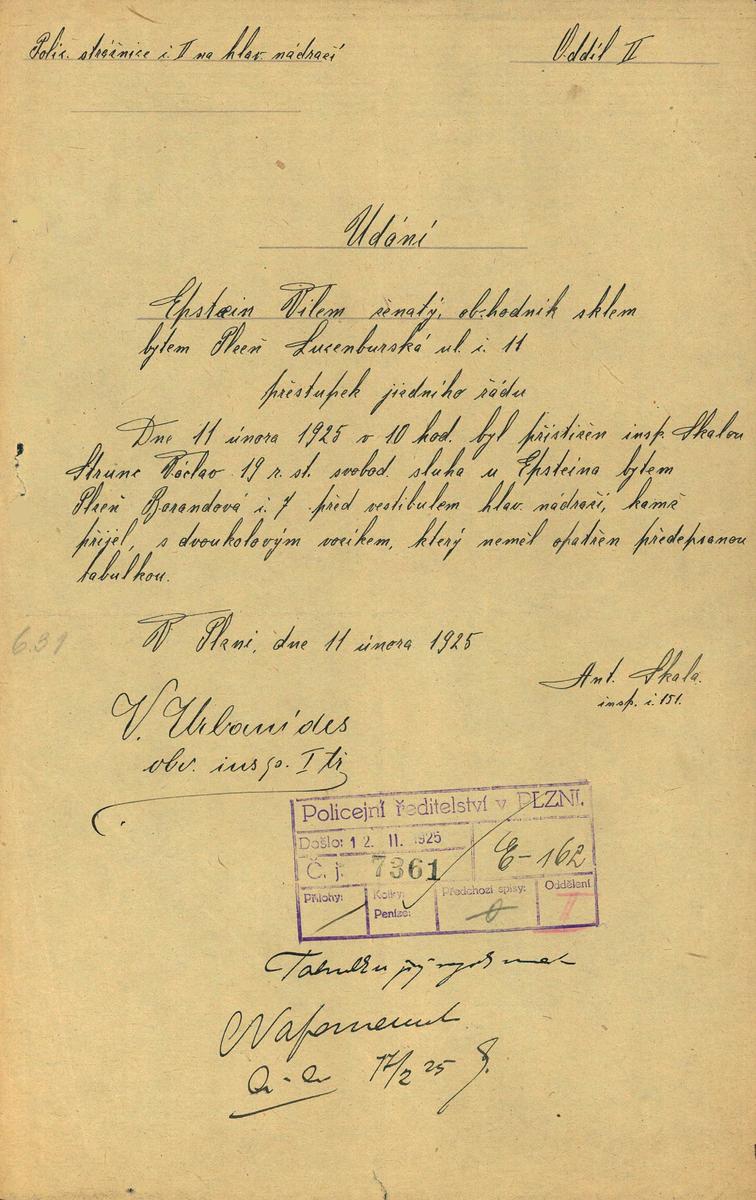 Polic. strážnice č. II na hlav. nádraží
Oddíl II
Udání
Epstein Vilem ženatý, obchodník sklem
bytem Plzeň Lucenburská ul. č. 11
přestupek jízdního řádu
Dne 11 února 1925 v 10 hod. byl přistižen insp. Skalou
Strunc Václav 19 r. st. svobod. sluha u Epsteina bytem
Plzeň Barandová č. 7 před vestibulem hlav. nádraží, kamž
přijel, s dvoukolovým vozíkem, který neměl opatřen předepsanou
tabulkou.
V Plzni, dne 11 února 1925
6.31
Ant. Skala.
insp. č. 151.
V. Urbanides
obv. insp. I tř
Policejní ředitelství v PLZNI.
Došlo: 12. II. 1925
Č. j. 7361
E-162
Přílohy:
Kolky:
Peníze:
Předchozí spisy:
0
Oddělení
II
Tabulku
Napomenut
17/2 25